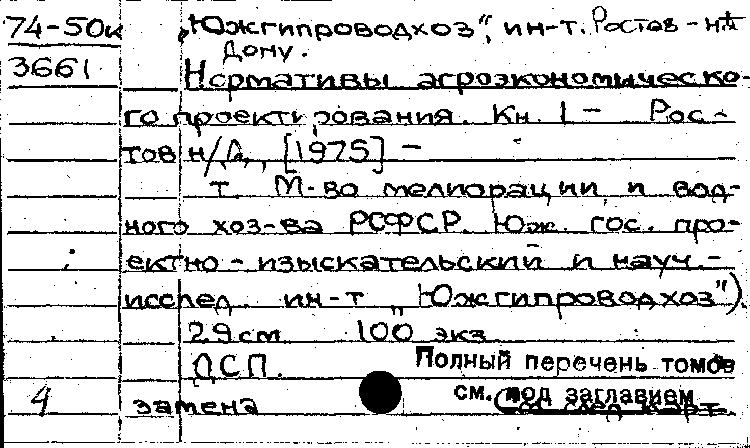 74-50к „Южгипроводхоз“, ин-т. Ростов-н/
Дону.
3661 Нормативы агроэкономическо-
го проектирования. Кн. 1 – Рос-
тов н/Д., [1975] –
т. М-во мелиорации и вод-
ного хоз-ва РСФСР. Юж. гос. про-
ектно-изыскательский и науч.-
исслед. ин-т „Южгипроводхоз“).
29 см 100 экз
ДСП.
Полный перечень томов
см. под заглавием
4 замена